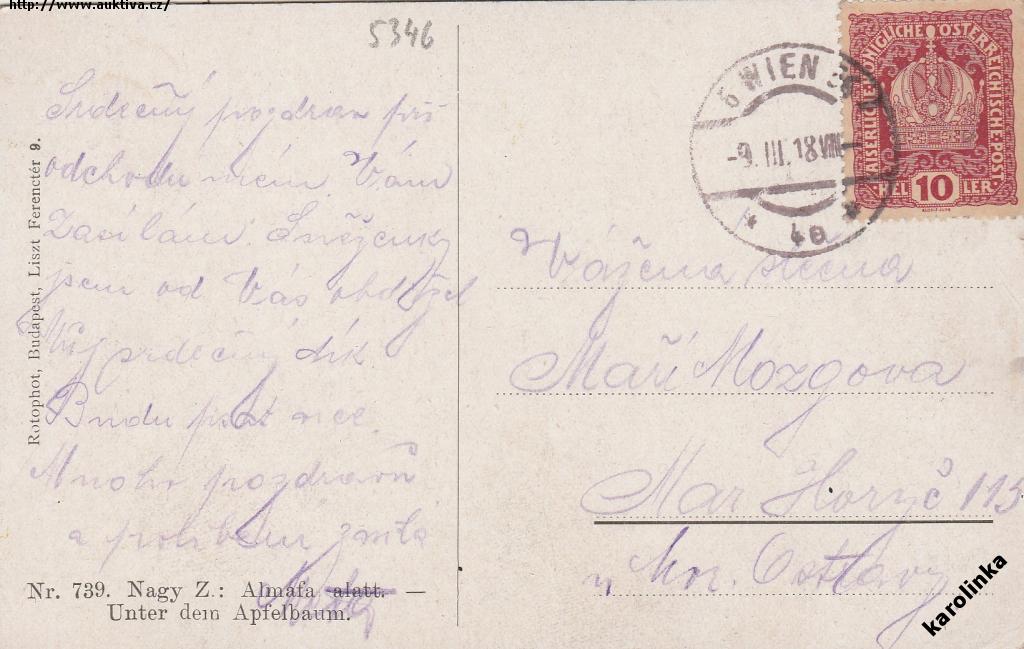 http://www.auktiva.cz/
5346
Srdečný pozdrav při
odchodu mém Vám
Zasílám. Sněženky
jsem od Vás obdržel
Můj srdečný dík
Budu psát více.
Mnoho pozdravů
a políbení zasílá
Rotophot, Budapest, Liszt Ferenctér 9.
Nr. 739. Nagy Z.: Almafa alatt. —
Unter dem Apfelbaum.
WIEN
-9.III.18 VIII-
* 4a *
KAISERLICHE KÖNIGLICHE ÖSTERREICHISCHE POST
HEL 10 LER
Vážena slečna
Maří Mozgova
Mar Horyč 115
u Mor Ostravy
karolinka